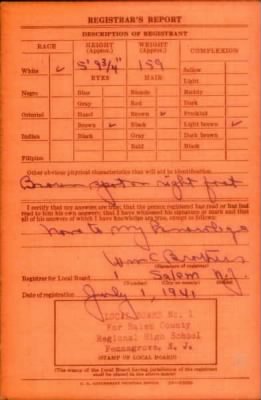 REGISTRAR'S REPORT
DESCRIPTION OF REGISTRANT
RACE HEIGHT (Approx.) WEIGHT (Approx.) COMPLEXION
White ✓ 5' 9 3/4" 159 Sallow
EYES HAIR Light
Negro Blue Blonde Ruddy
Gray Red Dark
Oriental Hazel Brown ✓ Freckled
Brown ✓ Black Light brown ✓
Indian Black Gray Dark brown
Bald Black
Filipino
Other obvious physical characteristics that will aid in identification
Brown spot on right foot
I certify that my answers are true; that the person registered has read or has had
read to him his own answers; that I have witnessed his signature or mark and that
all of his answers of which I have knowledge are true, except as follows:
none to my knowledge
Wm C Brothers
(Signature of registrar)
Registrar for Local Board 1 Salem N.J.
(Number) (City or county) (State)
Date of registration July 1, 1941
LOCAL BOARD No. 1
For Salem County
Regional High School
Pennsgrove, N. J.
(STAMP OF LOCAL BOARD)
(The stamp of the Local Board having jurisdiction of the registrant
shall be placed in the above space)
U. S. GOVERNMENT PRINTING OFFICE